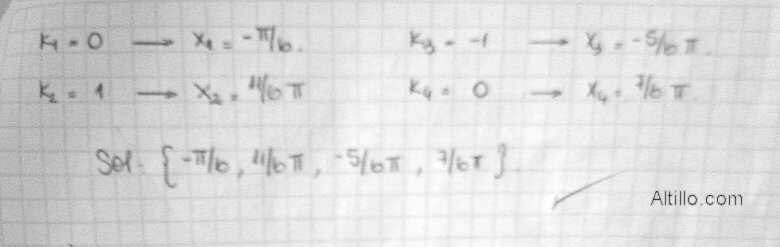 K₁ = 0 → x₁ = -π/6. K₃ = -1 → x₃ = -5/6 π.
K₂ = 1 → x₂ = 11/6 π K₄ = 0 → x₄ = 7/6 π
Sol. {-π/6, 11/6 π, -5/6 π, 7/6 π}.
Altillo.com